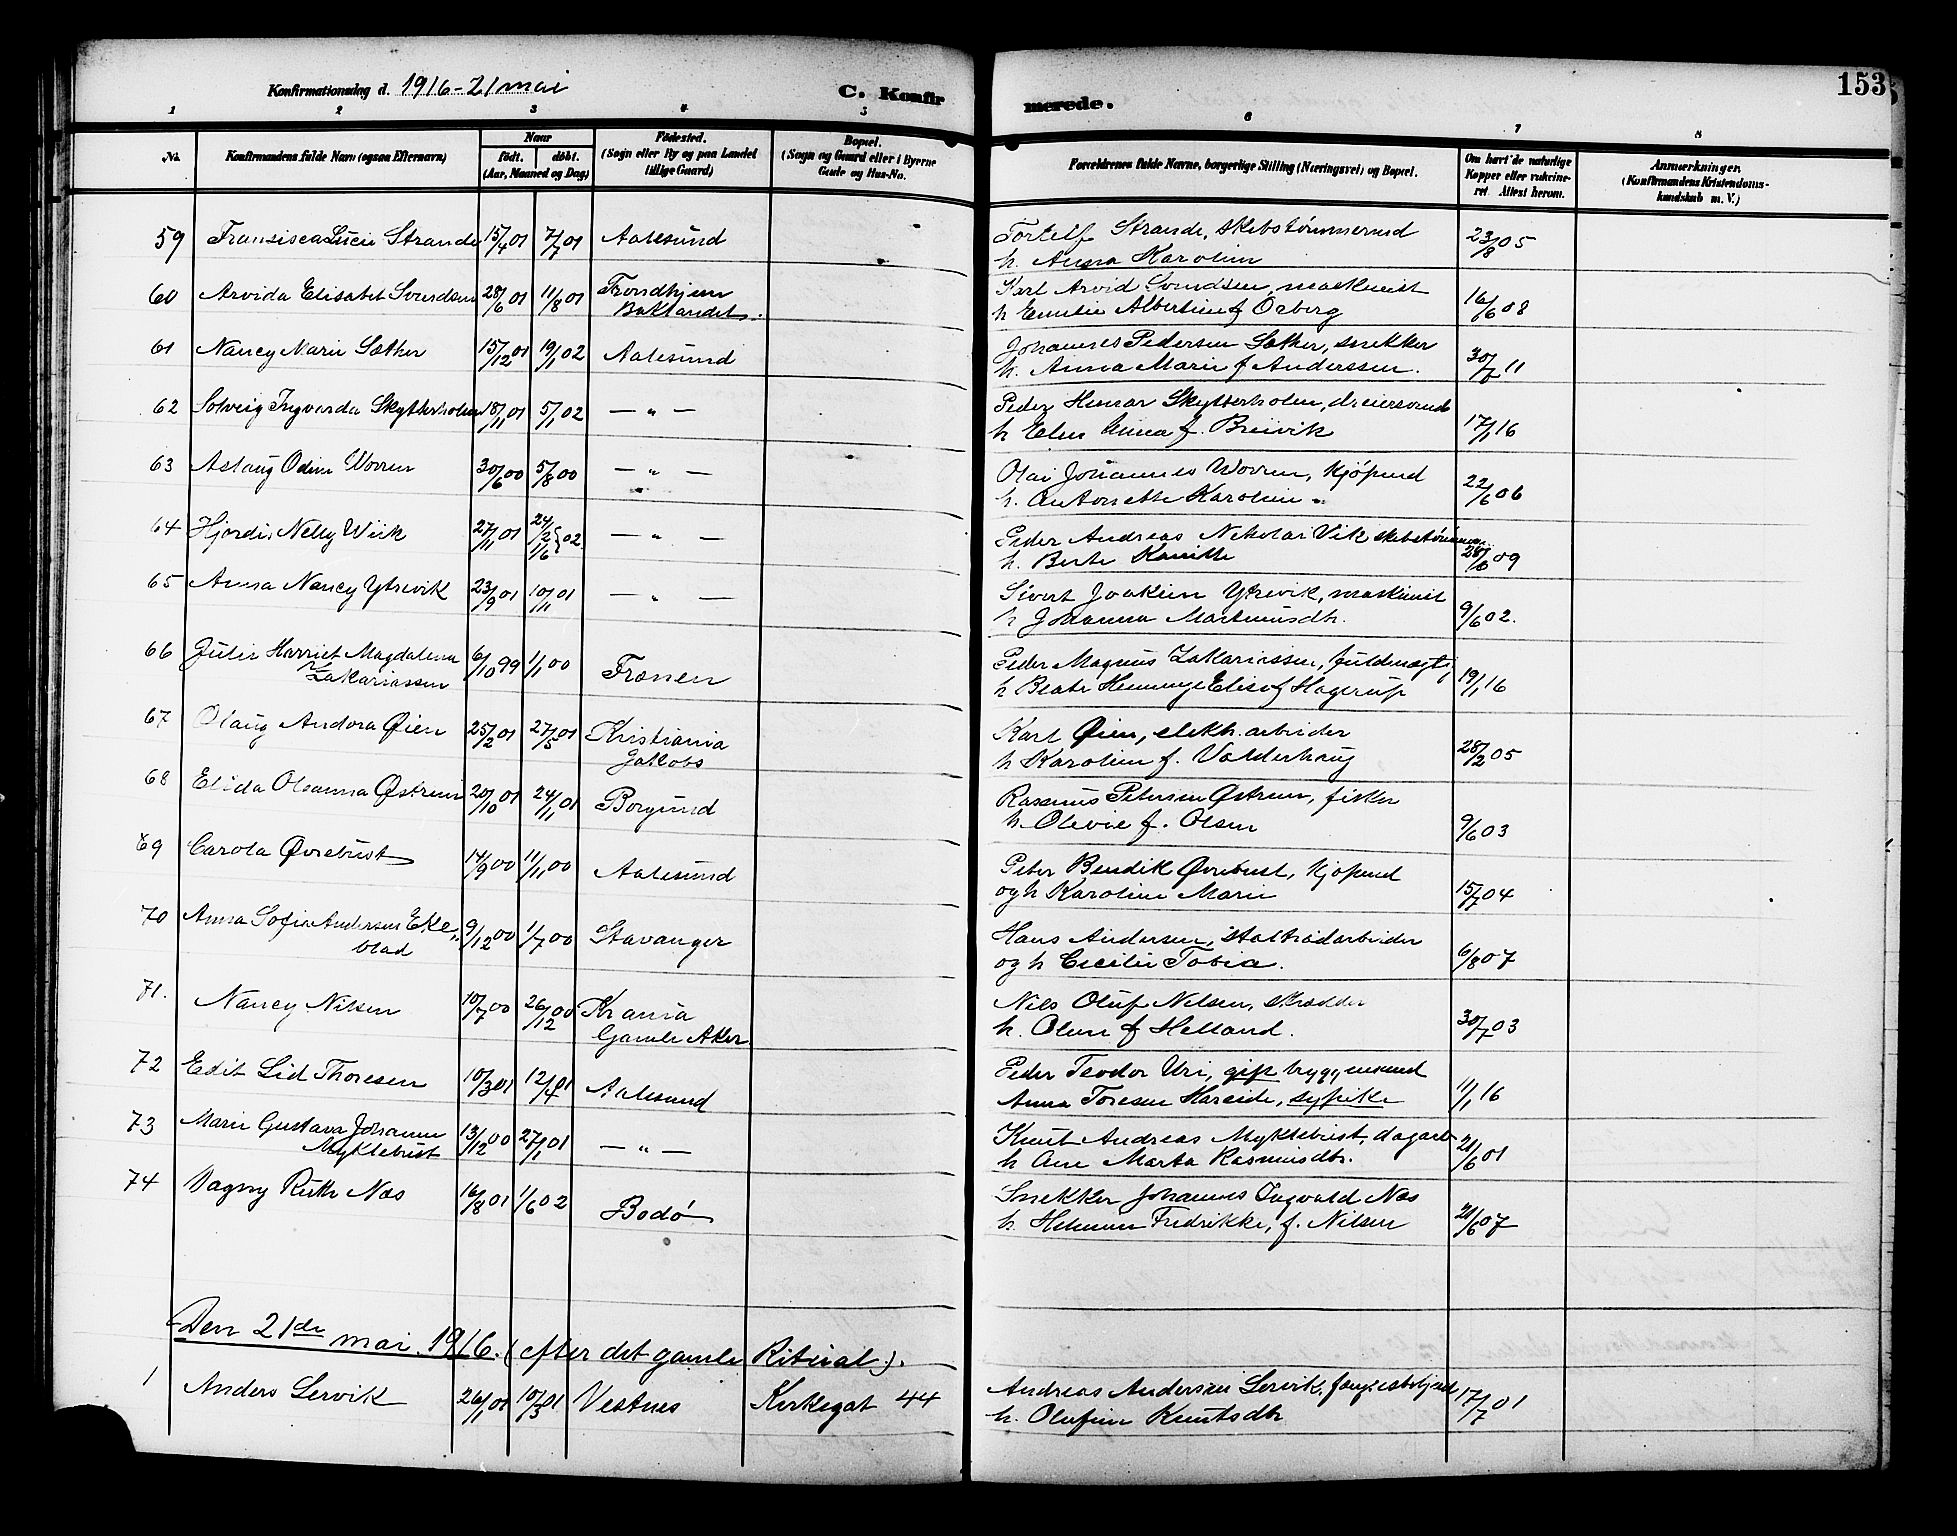 153
Konfirmationsdag d. 1916 - 21 mai
C. Konfirmerede.
1 2 3 4 5 6 7 8
No. Konfirmandens fulde Navn (ogsaa Efternavn) Naar født. døbt. (Aar, Maaned og Dag) Fødested. (Sogn eller By og paa Landet tillige Gaard) Bopæl. (Sogn og Gaard eller i Byerne Gade og Hus-No. Forældrenes fulde Navne, borgerlige Stilling (Næringsvei) og Bopæl. Om havt de naturlige Kopper eller vakcineret. Attest herom. Anmærkninger. (Konfirmandens Kristendomskundskab m. V.)
59 Fransisca Lucie Strande 15/4 01 7/7 01 Aalesund Strande, skibstømmermd 23/8 05
h. Anna Karoline
60 Arvida Elisabet Svendsen 28/6 01 11/8 01 Trondhjem Karl Arvid Svendsen, maskinist 16/6 08
Baklandet. h Emilie Albertine f Ørberg
61 Nancy Marie Sæther 15/12 01 19/1 02 Aalesund Johannes Pedersen Sæther, snekker 30/7 11
h. Anna Marie f Anderssen.
62 Solveig Ingvarda Skytterholm 18/11 01 5/1 02 — " — Peder Skytterholm, dreiersvend 17/1 16
h Anna f. Breivik
63 Aslaug Odine Worren 30/6 00 5/8 00 — " — Olai Johannes Worren, kjøpmd 22/6 06
h. Antonette Karoline
64 Hjordis Nelly Wiik 27/11 01 24/2 1/6 } 02 — " — Peder Andreas Nikolai Vik skibstømmerm. 28/6 09
h. Berte
65 Anna Nancy Ytrevik 23/9 01 10/11 01 — " — Sivert Joakim Ytrevik, maskinist 9/6 02.
h Johanna Martinusdtr.
66 Julie Harriet Magdalena Zakariassen 6/10 99 1/1 00 Peder Magnus Zakariassen, fuldmægti, 19/1 16
h Beate Henninge Elise f Hagerup
67 Olaug Andora Øien 25/2 01 27/5 01 Kristiania Jakobs Karl Øien, elektr. arbeider 28/2 05
h Karoline f. Valderhaug
68 Elida Olsanna Østrem 20/10 01 24/11 01 Borgund Rasmus Petersen Østrem, fisker 9/6 03
h. Olevie f. Olsen
69 Carola Øvrebust 14/9 00 11/11 00 Aalesund Peter Bendik Øvrebust, kjøpmd 15/7 04
og h Karoline Marie
70 Anna Sofia Andersen Ekeblad 9/12 00 1/7 00 Stavanger Hans Andersen, staltraadarbeider 6/8 07
og h Cecilie Tobia.
71. Nancy Nilsen 10/7 00 26/12 00 Krania Gamle Aker Nils Oluf Nilsen, skrædder 30/7 03
h. Oline f Helland.
72 Edit Lid Thoresen 10/3 01 12/4 01 Aalesund Peder Teodor Uri, gift bryggemand 11/1 16
Anna Toresen Hareide, sypike
73 Marie Gustava Johanne Myklebust 13/12 00 27/1 01 — " — Knut Andreas Myklebust, dagarb 21/6 01
h Ane Marta Rasmusdtr.
74 Dagny Ruth Næs 16/8 01 1/6 02 Bodø Snekker Johannes Ingvald Næs 21/6 07
h. Helmine Fredrikke, f. Nilsen
Den 21de mai. 1916. (efter det gamle Ritual).
1 Anders Lervik 26/1 01 10/3 01 Vestnes Kirkegat 44 Andreas Andersen Lervik, 17/7 01
h. Olufine Knutsdtr